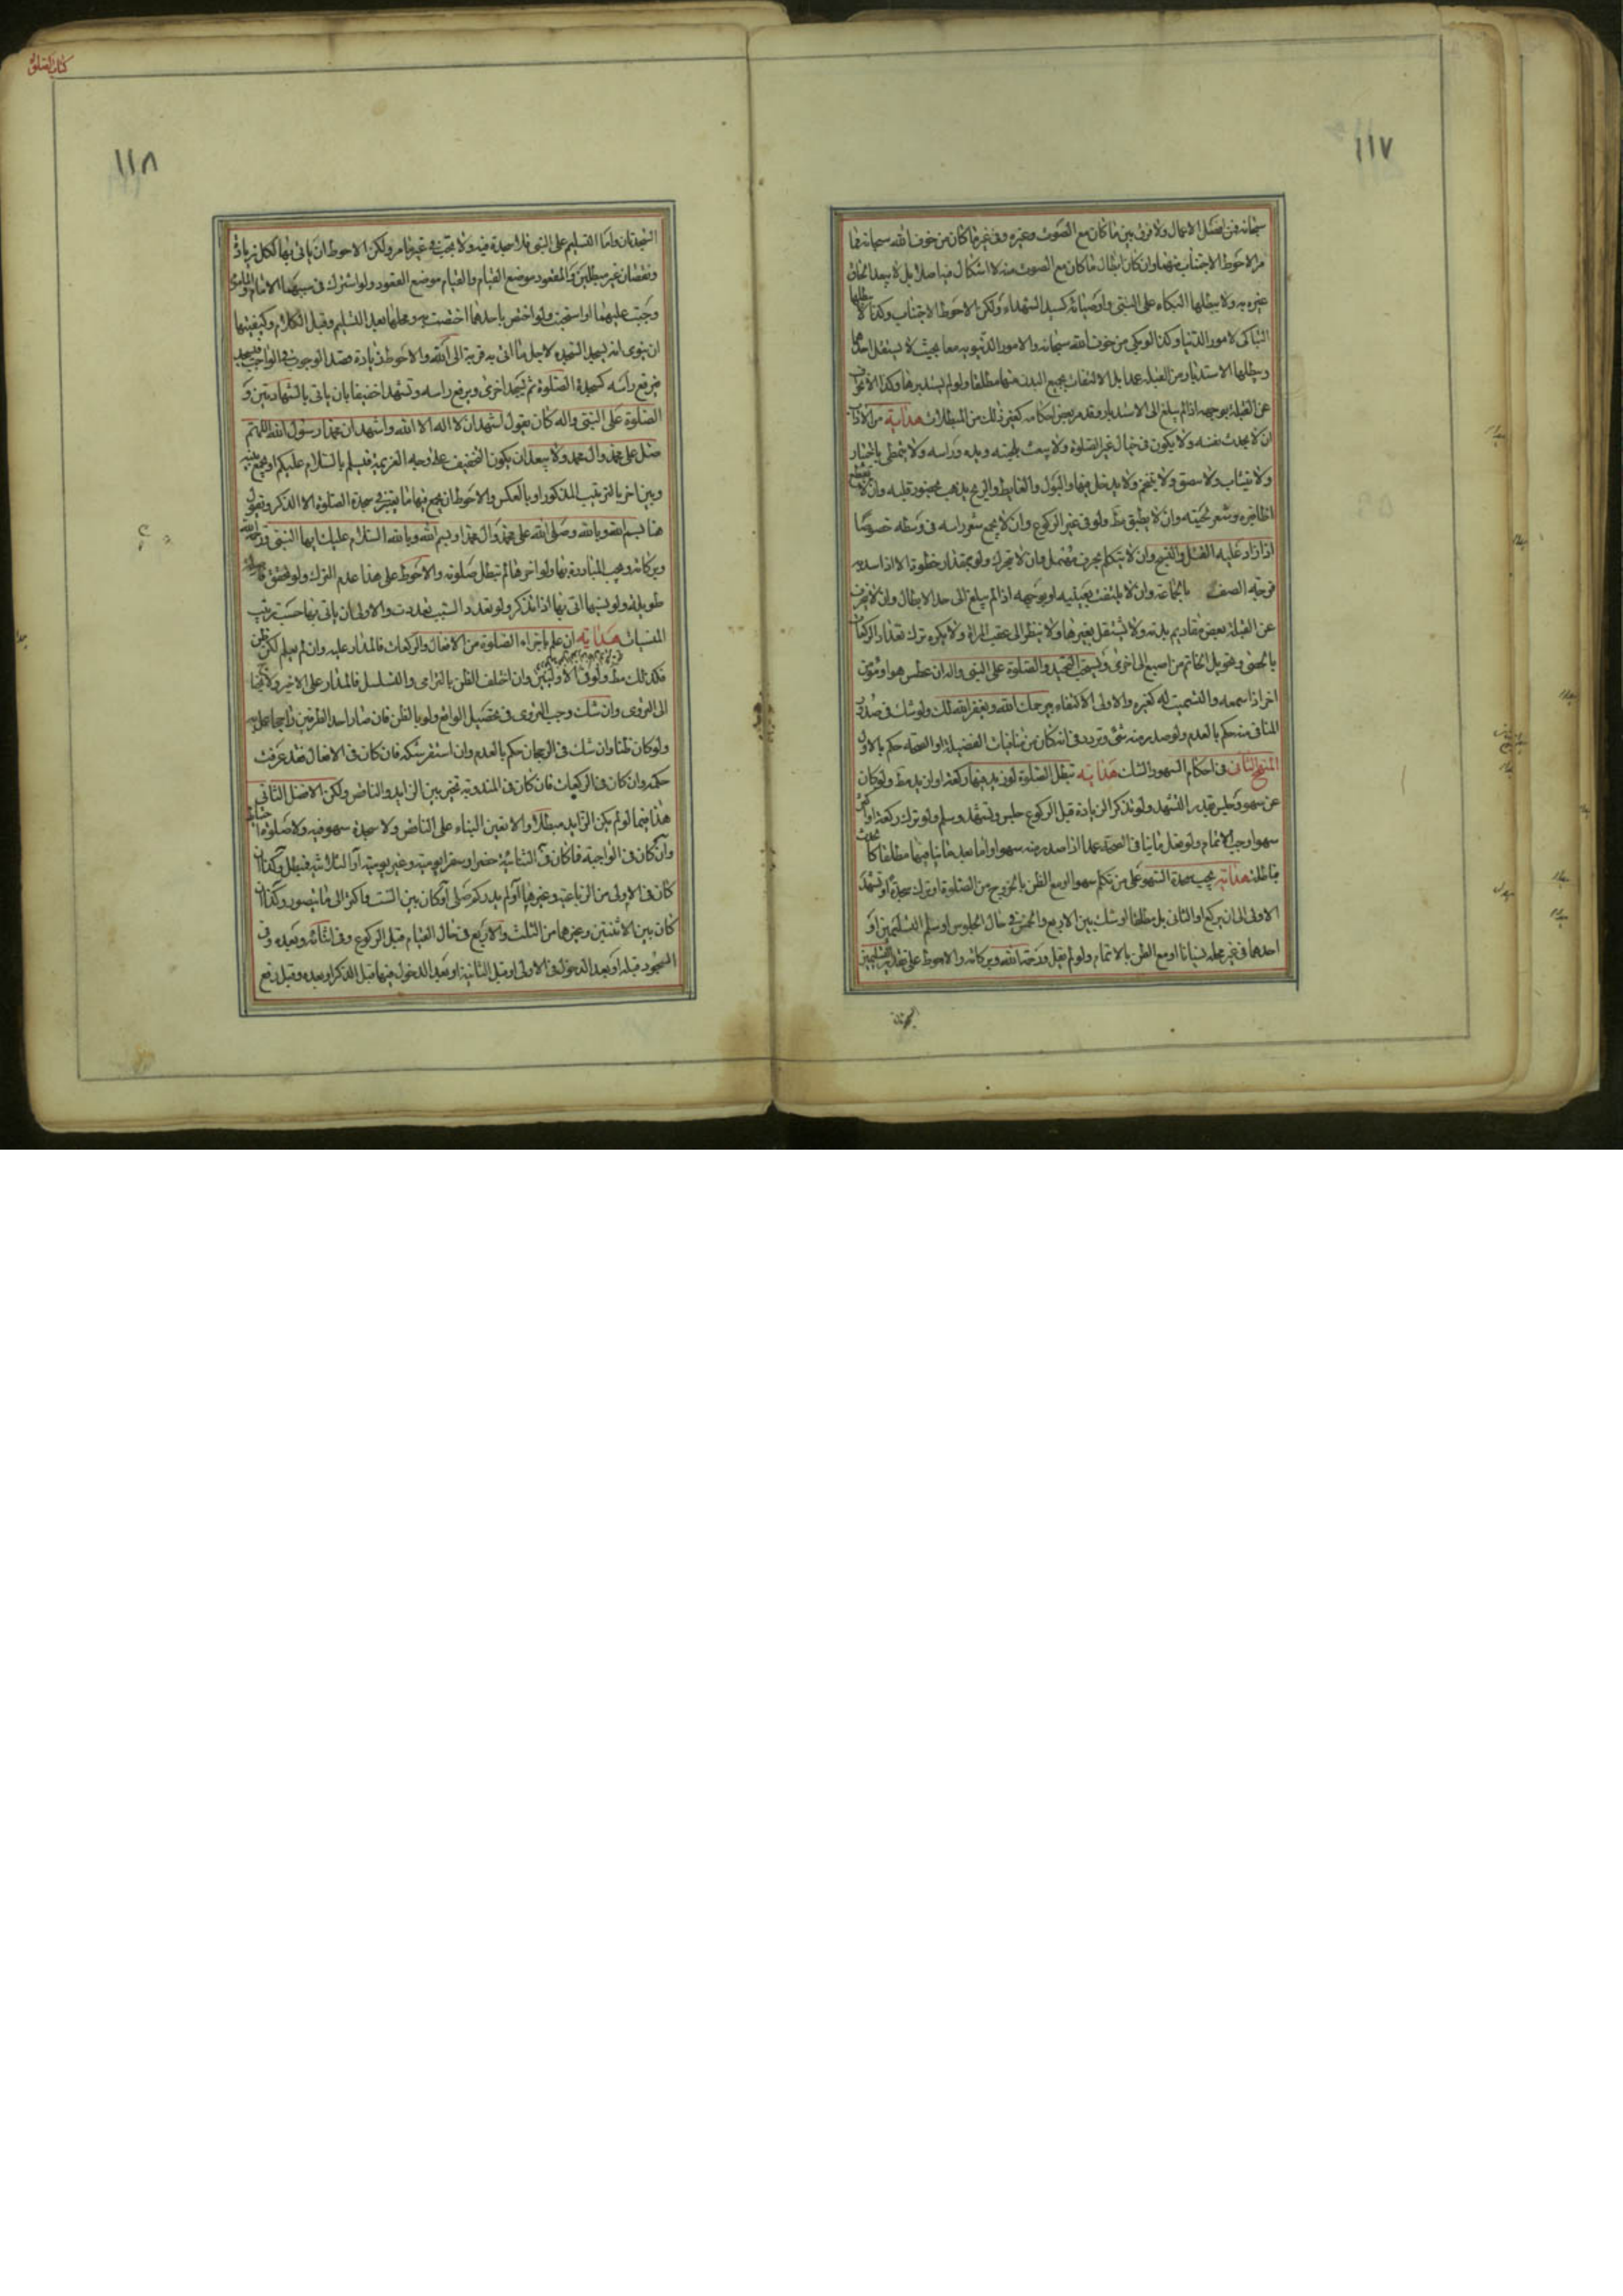 ١١٧
سبحانه فمن افضل الاعمال ولا فرق بين ما كان مع الصوت وغيره وفى غيرها كان من خوف الله سبحانه فما
مر الاحوط الاجتناب عنهما وان كان ابطال ما كان مع الصوت منه لا اشكال فيه اصلا بل لا يبعد الحاق
غيره به ولا يبطلها البكاء على النبى واوصيائه كسيد الشهداء ولكن الاحوط الاجتناب وكذا لا يبطلها
التباكى لامور الدنيا وكذا لو بكى من خوف الله سبحانه والامور الدنيوية معا بحيث لا يستقل احدهما
ويبطلها الاستدبار من القبلة عمدا بل الالتفات بجميع البدن عنها مطلقا ولو لم يستدبرها وكذا الانحراف
عن القبلة بوجهه اذا لم يبلغ الى الاستدبار وقد مر بعض احكامه كغير ذلك من المبطلات هداية من الاداب
ان لا يحدث نفسه ولا يكون فى خيال غير الصلوة ولا يعبث بلحيته ويده وراسه ولا يتمطى باختيار
ولا يتثاب ولا يبصق ولا يتنخم ولا يدخل فيها والبول والغايط والريح يذهب بحضور قلبه وان لا يقطع
اظافيره وشعر لحيته وان لا يطبق مط ولو فى غير الركوع وان لا يجمع شعر راسه فى وسطه خصوصا
اذا زاد عليه الفتل والنسج وان لا يتكلم بحرف مهمل وان لا يتحرك ولو بمقدار خطوة الا اذا سد به
فرجة الصف بالجماعة وان لا يلتفت بعينيه او بوجهه اذا لم يبلغ الى حد الابطال وان لا ينحرف
عن القبلة ببعض مقاديم بدنه ولا يشتغل بغيرها ولا ينظر الى عقب المراة ولا يكره ترك تعداد الركعات
بالحصى وتحويل الخاتم من اصبع الى اخرى ويستحب التحميد والصلوة على النبى واله ان عطس هو او مؤمن
اخر اذا سمعه والتسميت له كغيره والاولى الاكتفاء بيرحمك الله ويغفر الله لك ولو شك فى صدور
المنافى منه حكم بالعدم ولو صدر منه شئ وتردد فى انه كان من منافيات الفضيلة او الصحة حكم بالاول
المنهج الثانى فى احكام السهو والشك هداية تبطل الصلوة لو زيد فيها ركعة او ازيد مط ولو كان
عن سهو وجلس بقدر التشهد ولو تذكر الزيادة قبل الركوع جلس وتشهد وسلم ولو ترك ركعة او اكثر
سهوا وجب الاتمام ولو فعل منافيا فى الصحة عمدا اذا صدر منه سهوا واما بعد ما ينافيها مطلقا كالحدث
فباطلة هداية يجب سجدة السهو على من تكلم سهوا او مع الظن بالخروج من الصلوة او ترك سجدة او تشهد
الاولى الى ان يركع او الثانى بل مطلقا او شك بين الاربع والخمس فى حال الجلوس او سلم التسليمتين او
احدهما فى غير محله نسيانا او مع الظن بالاتمام ولو لم يقل ورحمة الله وبركاته والاحوط على تقدير التسليمتين
كتاب الصلوة
١١٨
السجدتان واما التسليم على النبى فلا سجدة فيه ولا تجب فى غير ما مر ولكن الاحوط ان ياتى بها لكل زيادة
ونقصان غير مبطلين والقعود موضع القيام والقيام موضع القعود ولو اشترك فى سببهما الامام والماموم
وجبت عليهما او استحبت ولو اختص باحدهما اختصت به ومحلها بعد التسليم وقبل الكلام وكيفيتها
ان ينوى انه يسجد السجدة لاجل ما اتى به قربة الى الله والاحوط زيادة قصد الوجوب فى الواجب فيسجد
فيرفع راسه كسجدة الصلوة ثم يسجد اخرى ويرفع راسه وتشهد اخفيفا بان ياتى بالشهادتين و
الصلوة على النبى واله كان يقول اشهد ان لا اله الا الله واشهد ان محمدا رسول الله اللهم
صل على محمد وال محمد ولا يبعد ان يكون التخفيف على وجه العزيمة فيسلم بالسلام عليكم او يجمع بينه
وبين اخر بالترتيب المذكور او بالعكس والاحوط ان يجمع فيها ما يعتبر فى سجدة الصلوة الا الذكر ويقول
هنا بسم الله وبالله وصلى الله على محمد وال محمد او بسم الله وبالله السلام عليك ايها النبى ورحمة الله
وبركاته ويجب المبادرة بها ولو اخرها لم تبطل صلوته والاحوط على هذا عدم الترك ولو تحقق فاصلة
طويلة ولو نسيها اتى بها اذا تذكر ولو تعدد السبب تعددت والاولى ان ياتى بها حسب ترتيب
المنسيات هداية ان علم باجزاء الصلوة من الافعال والركعات فالمدار عليه وان لم يعلم لكن ظن
فكذلك مط ولو فى الاوليين وان اختلف الظن بالترامى والتسلسل فالمدار على الاخير ولا يحتاج
الى التروى وان شك وجب التروى فى تحصيل الواقع ولو بالظن فان صار احد الطرفين راجحا عمل به
ولو كان ظنا وان شك فى الرجحان حكم بالعدم وان استقر شكه فان كان فى الافعال فقد عرفت
حكمه وان كان فى الركعات فان كان فى المندوبة تخير بين الزايد والناقص ولكن الافضل الثانى
هذا فيما لو لم يكن الزايد مبطلا والا تعين البناء على الناقص ولا سجدة سهو فيه ولا صلوة احتياط
وان كان فى الواجبة فاكان فى الثنائية حضرا وسفرا يومية وغير يومية او الثلاثية فيبطل وكذا ان
كان فى الاولى من الرباعية وغيرها او لم يدر كم صلى او كان بين الست واكثر الى ما يتصور وكذا ان
كان بين الاثنتين وغيرهما من الثلث والاربع فى حال القيام قبل الركوع وفى اثنائه وبعده وفى
السجود قبله او بعد الدخول فى الاولى او قبل الثانية او بعد الدخول فيها قبل الذكر او بعده وقبل رفع